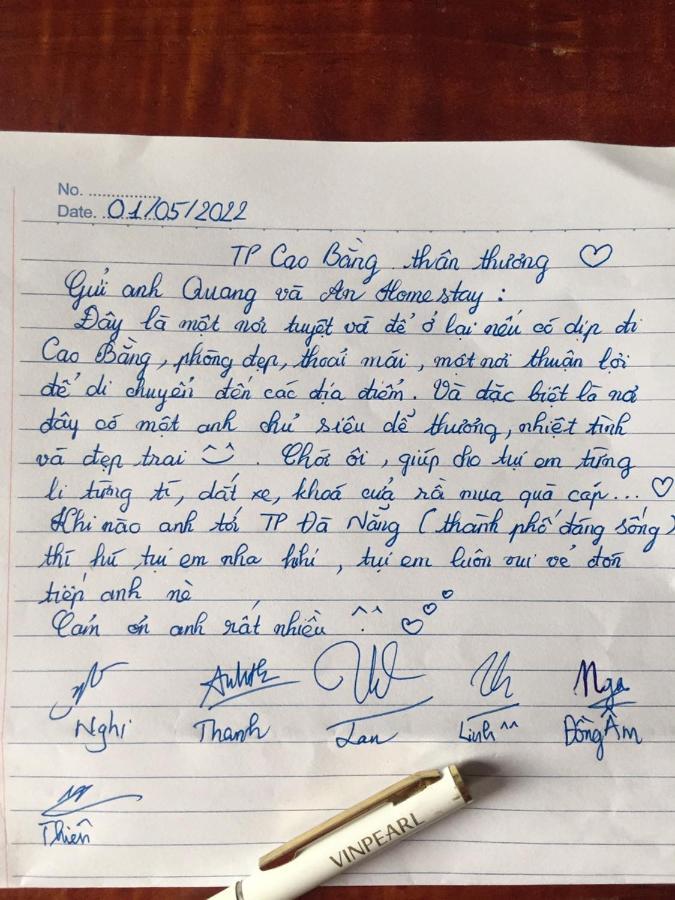 No. ..............
Date. 01/05/2022
TP Cao Bằng thân thương ♡
Gửi anh Quang và An Homestay :
Đây là một nơi tuyệt vời để ở lại nếu có dịp đi
Cao Bằng, phòng đẹp, thoải mái, một nơi thuận lợi
để di chuyển đến các địa điểm. Và đặc biệt là nơi
đây có một anh chủ siêu dễ thương, nhiệt tình
và đẹp trai ^^ . Chời ôi, giúp cho tụi em từng
li từng tí, dắt xe, khoá cửa rồi mua quà cáp... ♡
Khi nào anh tới TP Đà Nẵng (thành phố đáng sống)
thì hú tụi em nha hihi, tụi em luôn vui vẻ đón
tiếp anh nè
Cảm ơn anh rất nhiều ^^ ♡♡♡
Anhth Nga
Nghi Thanh Lan Linh ^^ Đồng Âm
Thiên
VINPEARL